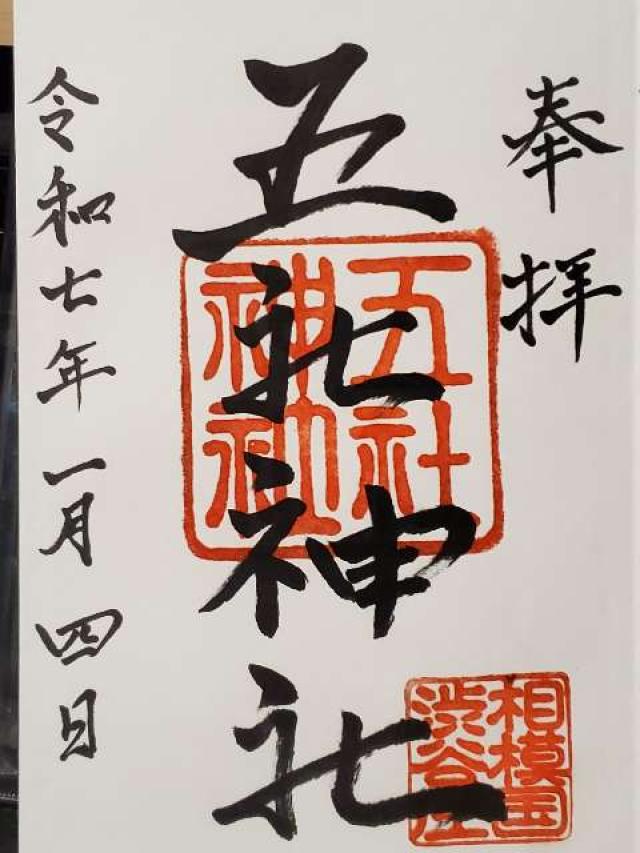 奉拝
五社神社
令和七年一月四日
五社
神社
相模国
渋谷庄